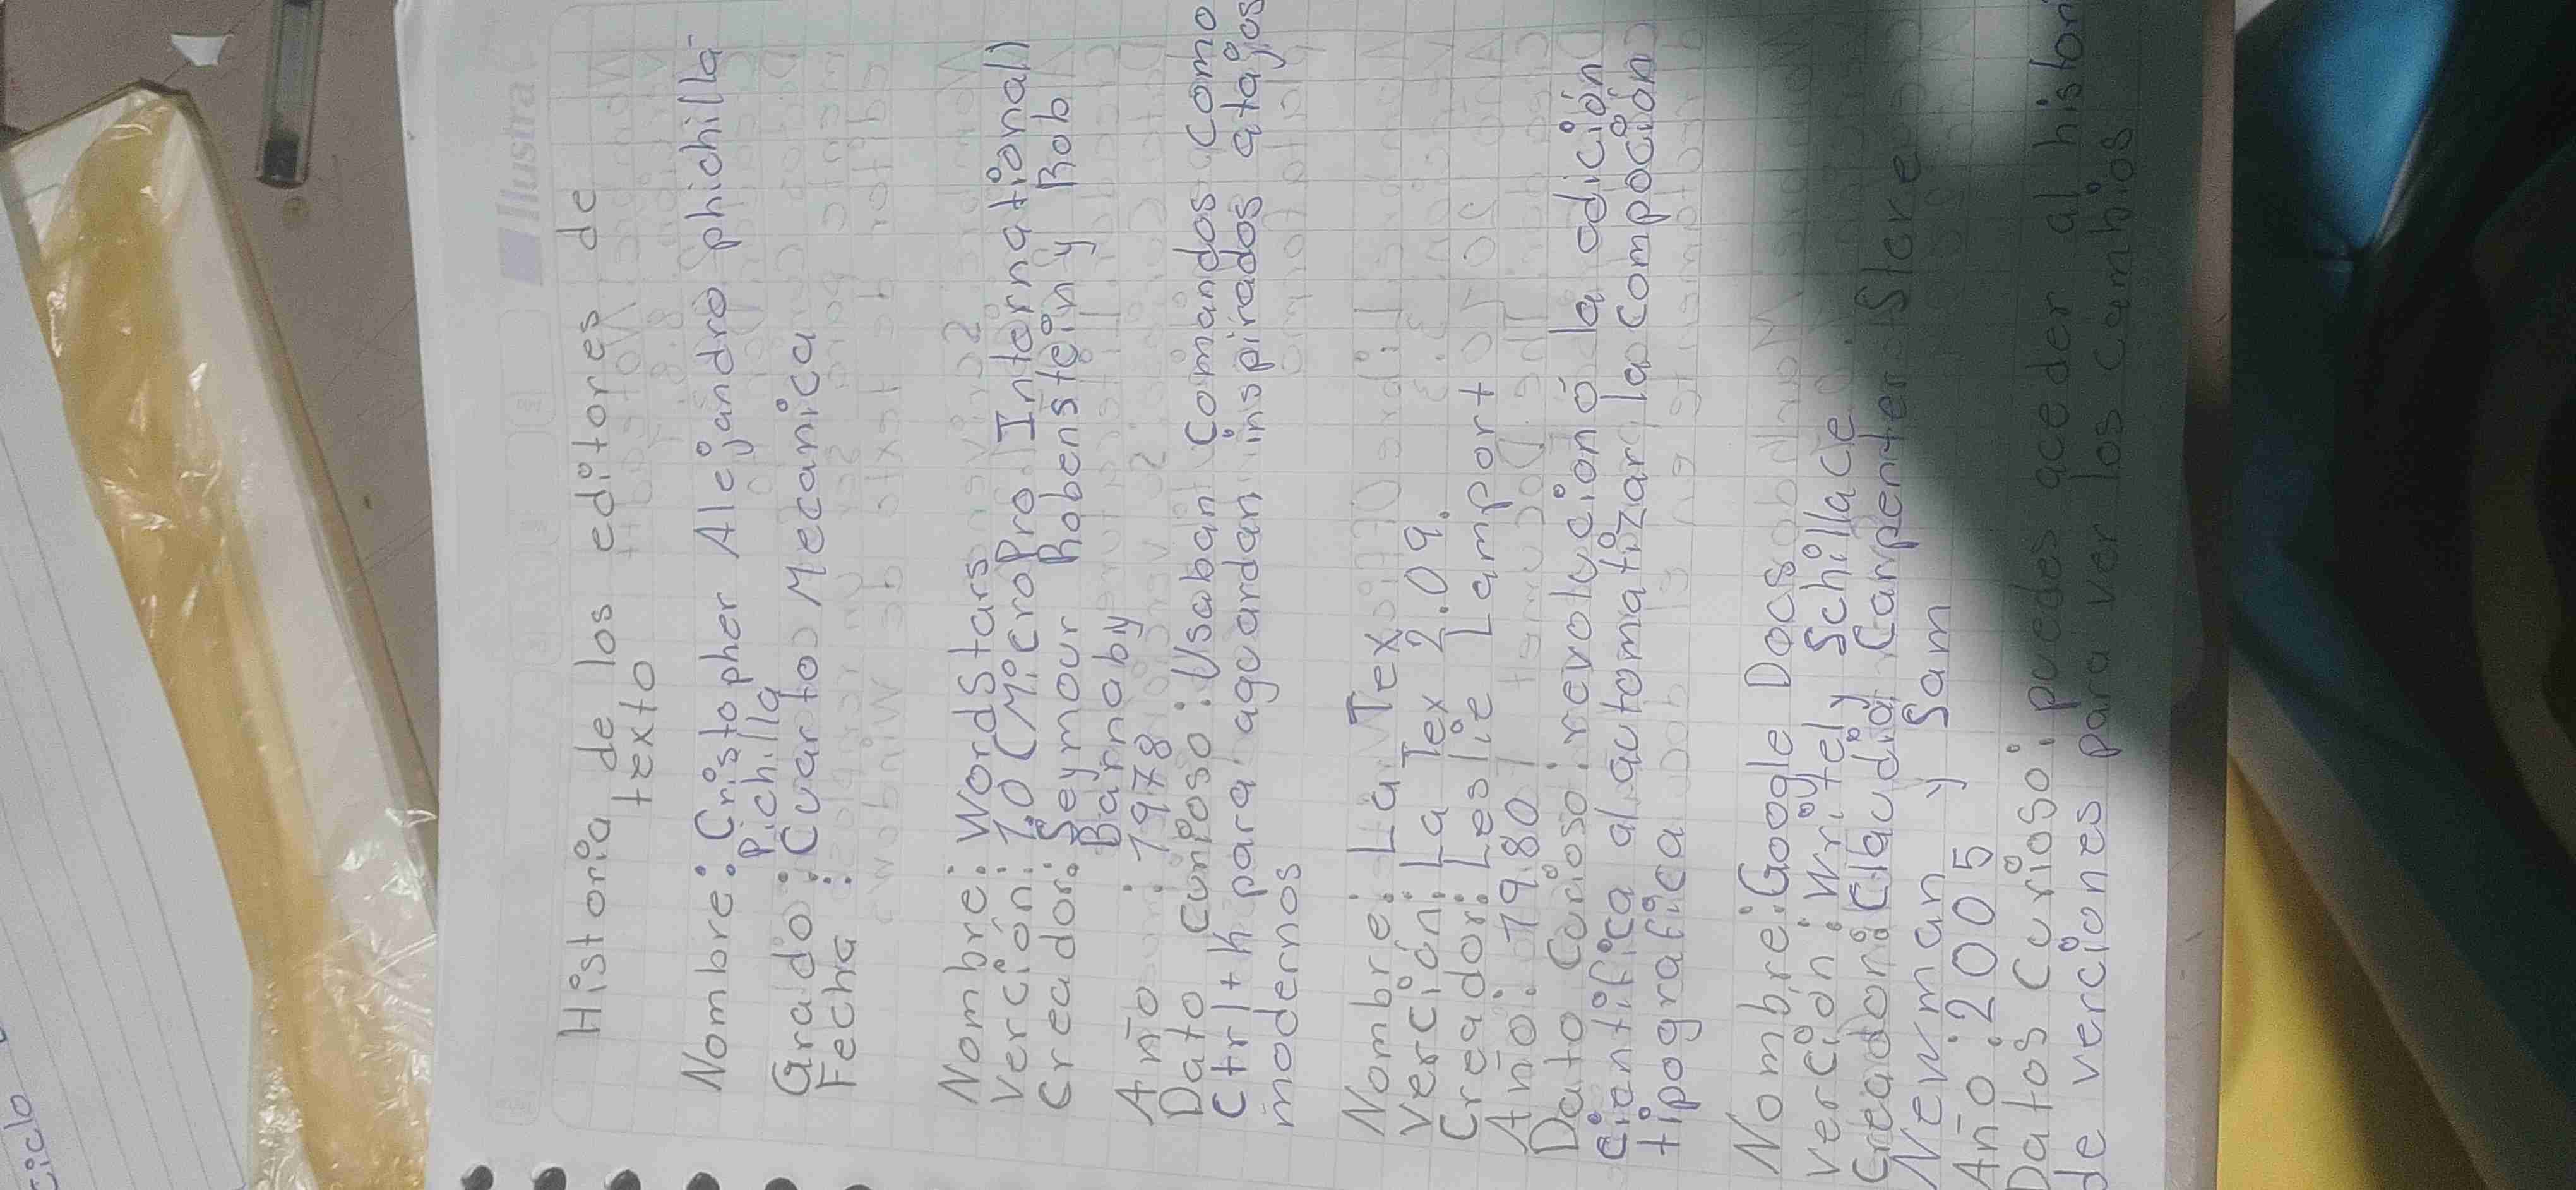 ciclo
Illustra
Historia de los editores de
texto
Nombre: Cristopher Alejandro phichilla
Pichilla
Grado: Cuarto Mecanica
Fecha :
Nombre: WordStars
Verción: 1.0 (MicroPro International)
Creador: Seymour Robenstein y Rob
Barnaby
Año : 1978
Dato curioso: Usaban comandos como
Ctrl+k para aguardan inspirados atajos
modernos
Nombre: La Tex
Verción: La Tex 2.09.
Creador: Leslie Lamport
Año: 1980
Dato Curioso: revolucionó la adición
ciantifica al automatizar la compoción
tipografica
Nombre: Google Docs
Verción: Writely Schillace
Creador: Claudia Carpenter Steve
Newman y Sam
Año: 2005
Datos Curioso: puedes aceder al histori
de verciones para ver los cambios